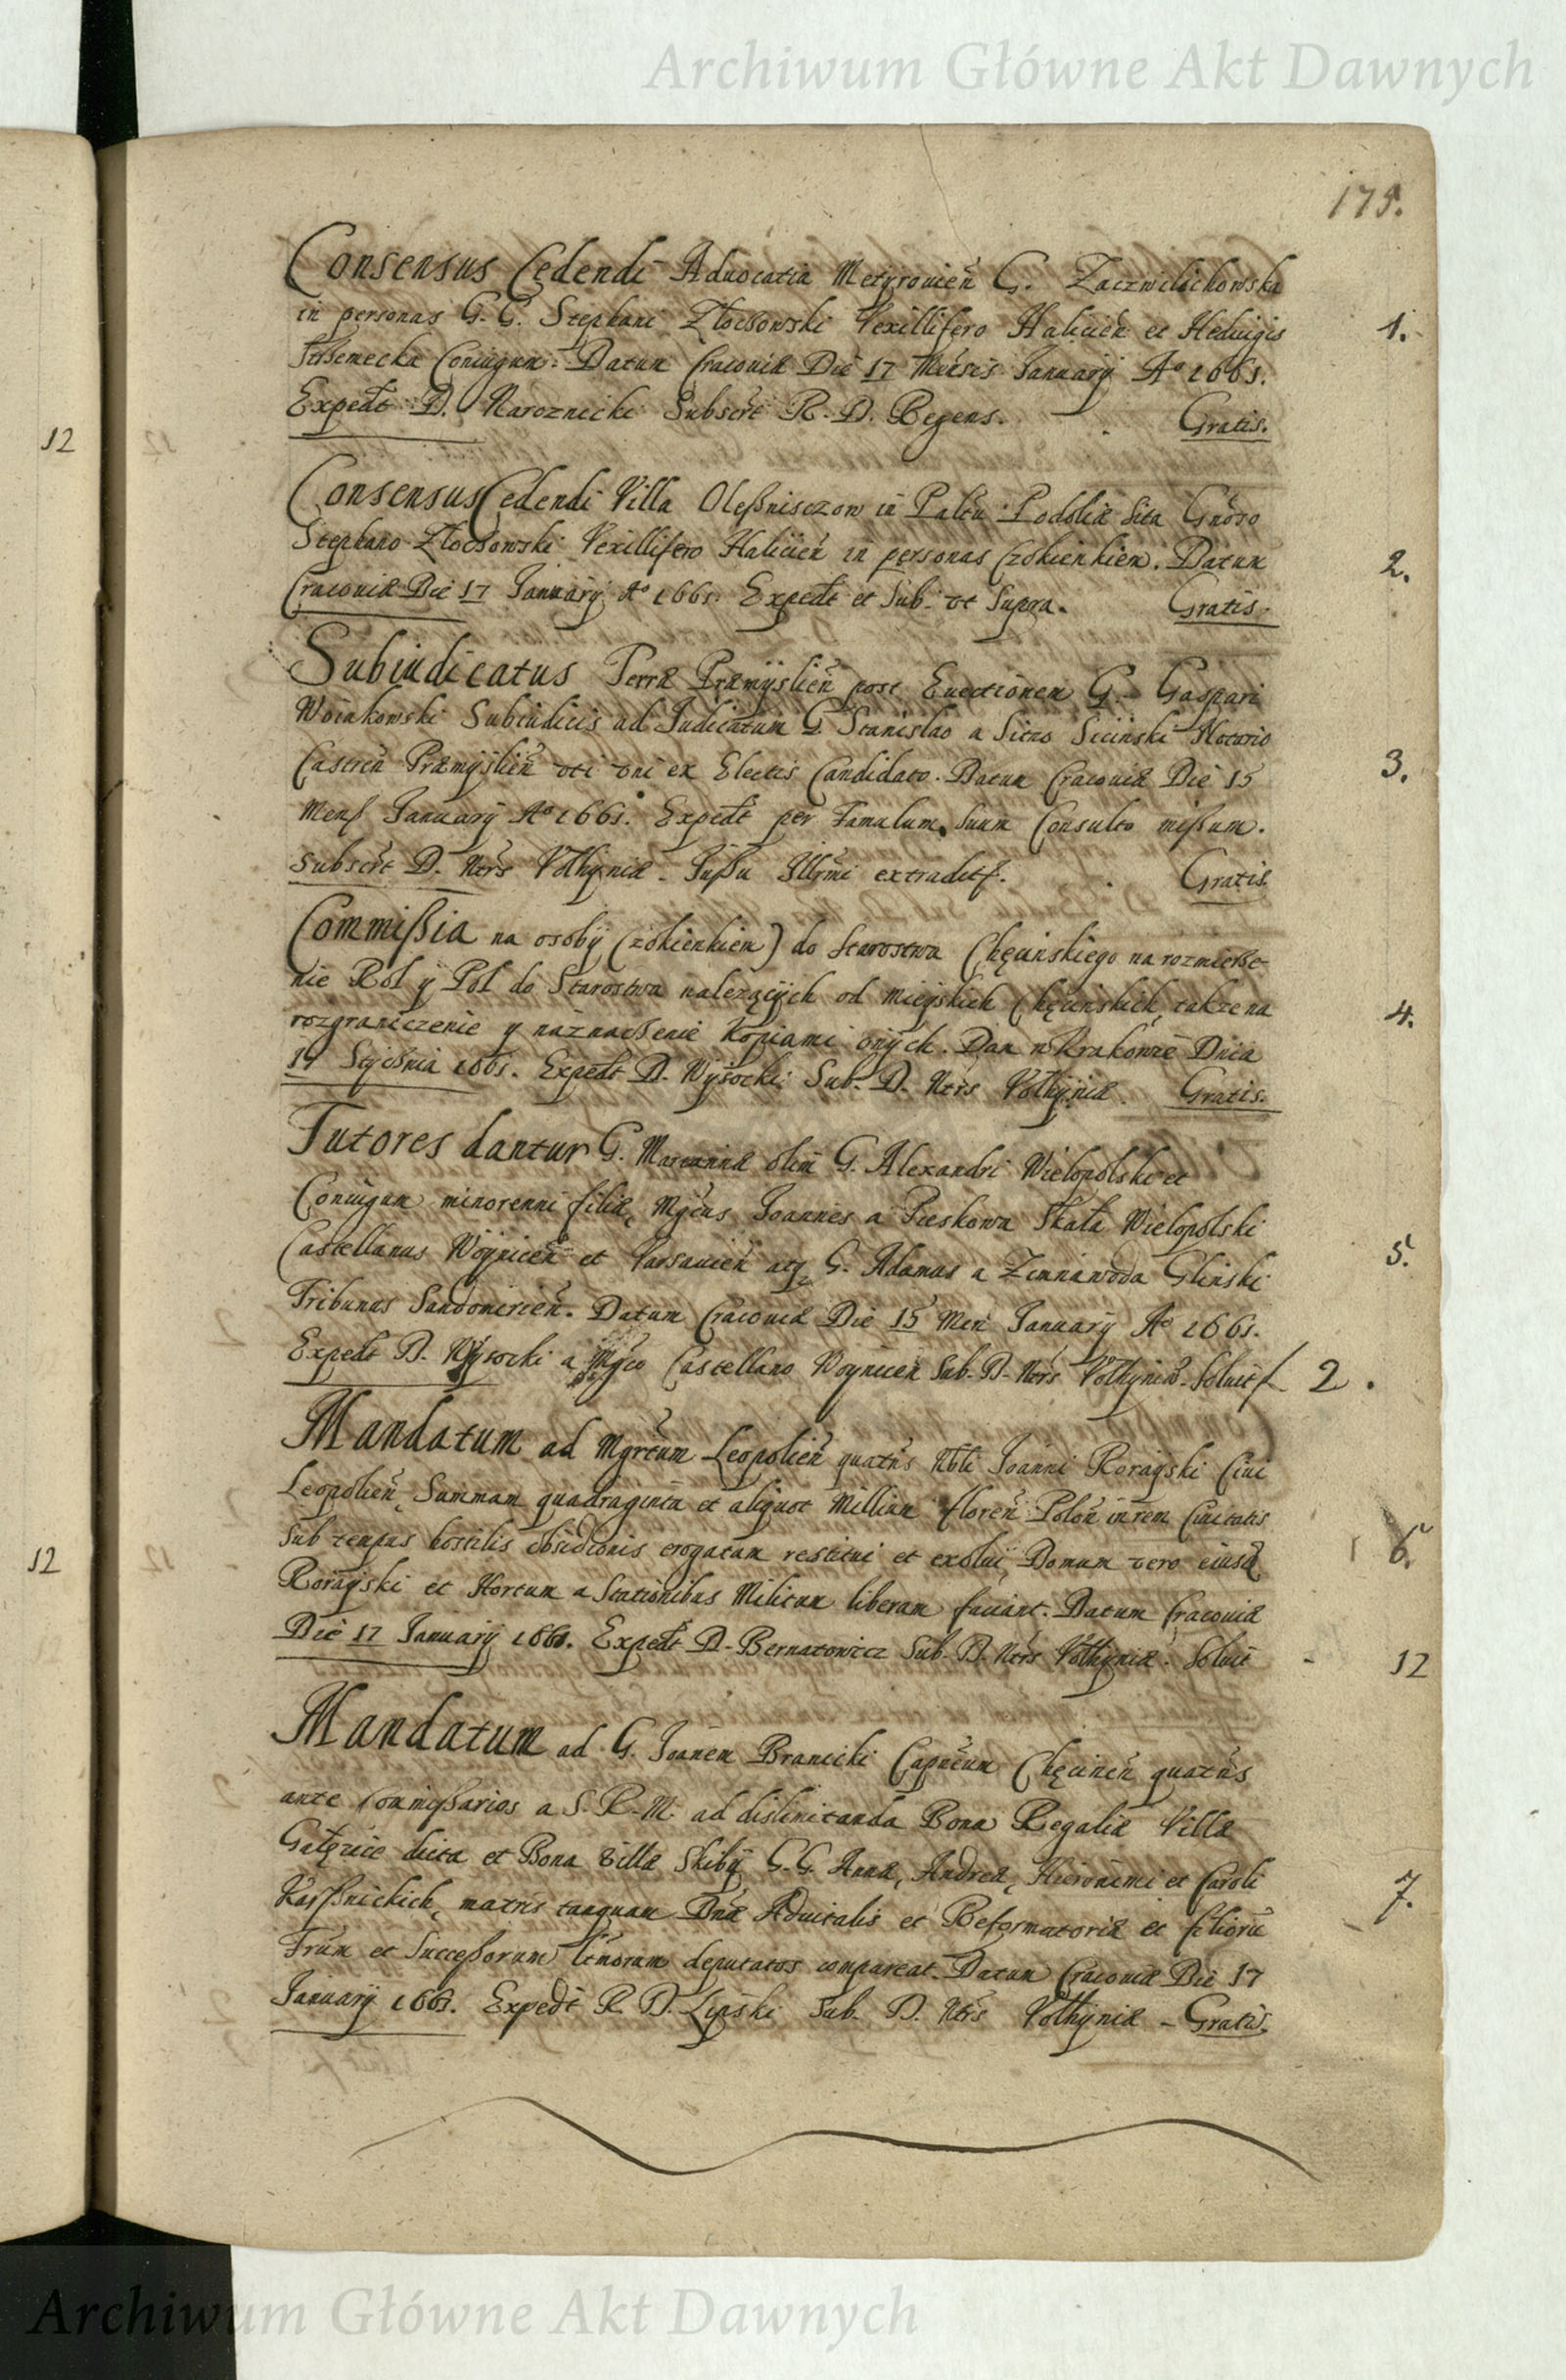 Archiwum Główne Akt Dawnych
175.
Consensus Cedendi Aduocatia Metyrouień G. Zaczwilichowska
in personas G. G. Stephani Złoczowski Vexillifero Halicień et Heduigis
Coniugum. Datum Cracouiæ Die 17 Mensis January Aº 1661.
Expedt D. Naroznicki Subscrt R. D. Regens. Gratis.
1.
12
Consensus Cedendi Villa Oleßnisczow in Paltu Podoliæ Sita Gnoso
Stephano Złoczowski Vexillifero Halicień in personas Czokienkiem. Datum
Cracouiæ Die 17 January Aº 1661. Expedt et Sub. vt Supra. Gratis.
2.
Subiudicatus Terræ Præmysslień post Euectionem G. Gaspari
Woiakowski Subiudicis ad Iudicatum G. Stanislao a Siczo Siciński Notario
Castreń Præmyslień vti vni ex Electis Candidato. Datum Cracouiæ Die 15
Menß January Aº 1661. Expedt per Famulum Suum Consulto mißum.
Subscrt D. Ntrs Volhyniæ. Jußu Illrmi extraditß. Gratis
3.
Commißia na osoby (zokienkiem) do Starostwa Chęcinskiego na rozmierze-
nie Rol y Pol do Starostwa nalezących od Mieyskich Chęcinskich, takze na
rozgraniczenie y naznaczenie kopcami onych. Dan w Krakowie Dnia
17 Stycznia 1661. Expedt D. Wysocki Sub. D. Ntrs Volhyniæ. Gratis.
4.
Tutores dantur G. Mariannæ olim G. Alexandri Wielopolski et
Coniugum minorenni filiæ, Mgcus Joannes a Pieskowa Skała Wielopolski
Castellanus Woyniceń et Varsauień atq G. Adamus a Zimnawoda Gliński
Tribunus Sandomirień. Datum Cracouiæ Die 15 Men January Aº 1661.
Expedt D. Wysocki a Mgco Castellano Woyniceń Sub. D. Ntrs Volhyniæ. Soluit f 2.
5.
Mandatum ad Mgrtum Leopolień quatns Nbli Joanni Ronayski Ciui
Leopolień, Summam quadraginta et aliquot Millium floreń Poloń in rem Ciuitatis
sub tempus hostilis obsidionis erogatam restitui et exolui, Domum vero eiusd
Ronayski et Hortum a Stationibus Militum liberam faciant. Datum Cracouiæ
Die 17 January 1661. Expedt D. Bernatowicz Sub. D. Ntrs Volhyniæ. Soluit - 12
6.
12
Mandatum ad G. Joanem Branicki Capneum Chęcineń quatns
ante Commißarios a S. R. M. ad dislimitanda Bona Regaliæ Villæ
Gałęzice dicta et Bona Villæ Skiby G. G. Annæ, Andreæ, Hieronimi et Caroli
matris tanquam Dnæ Aduitalis et Reformatoriæ et filioru
Frum et Succeßorum deputatos compareat. Datum Cracouiæ Die 17
January 1661. Expedt R. D. Lipski Sub. D. Ntrs Volhyniæ - Gratis.
7.
Archiwum Główne Akt Dawnych